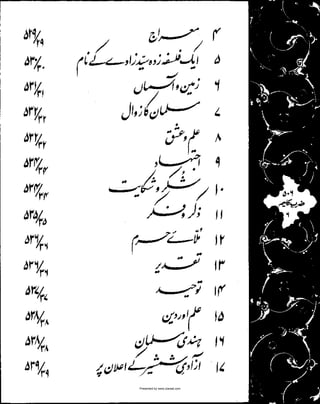 ۴ معراج ۵۲۹/۲۹
۵ ایک فلسفہ زدہ سیّد زادے کے نام ۵۳۰/۳۰
۶ زمین و آسماں ۵۳۱/۳۱
۷ مسلمان کا زوال ۵۳۲/۳۲
۸ علم و عشق ۵۳۲/۳۲
۹ اجتہاد ۵۳۴/۳۴
۱۰ شکر و شکایت ۵۳۴/۳۴
۱۱ ذکر و فکر ۵۳۵/۳۵
۱۲ مُلّائے حرم ۵۳۶/۳۶
۱۳ تقدیر ۵۳۶/۳۶
۱۴ توحید ۵۳۷/۳۷
۱۵ علم اور دین ۵۳۸/۳۸
۱۶ ہندی مسلمان ۵۳۸/۳۸
۱۷ آزادیِ شمشیر کے اعلان پر ۵۳۹/۳۹
۵۰۶
ضربِ کلیم
۶